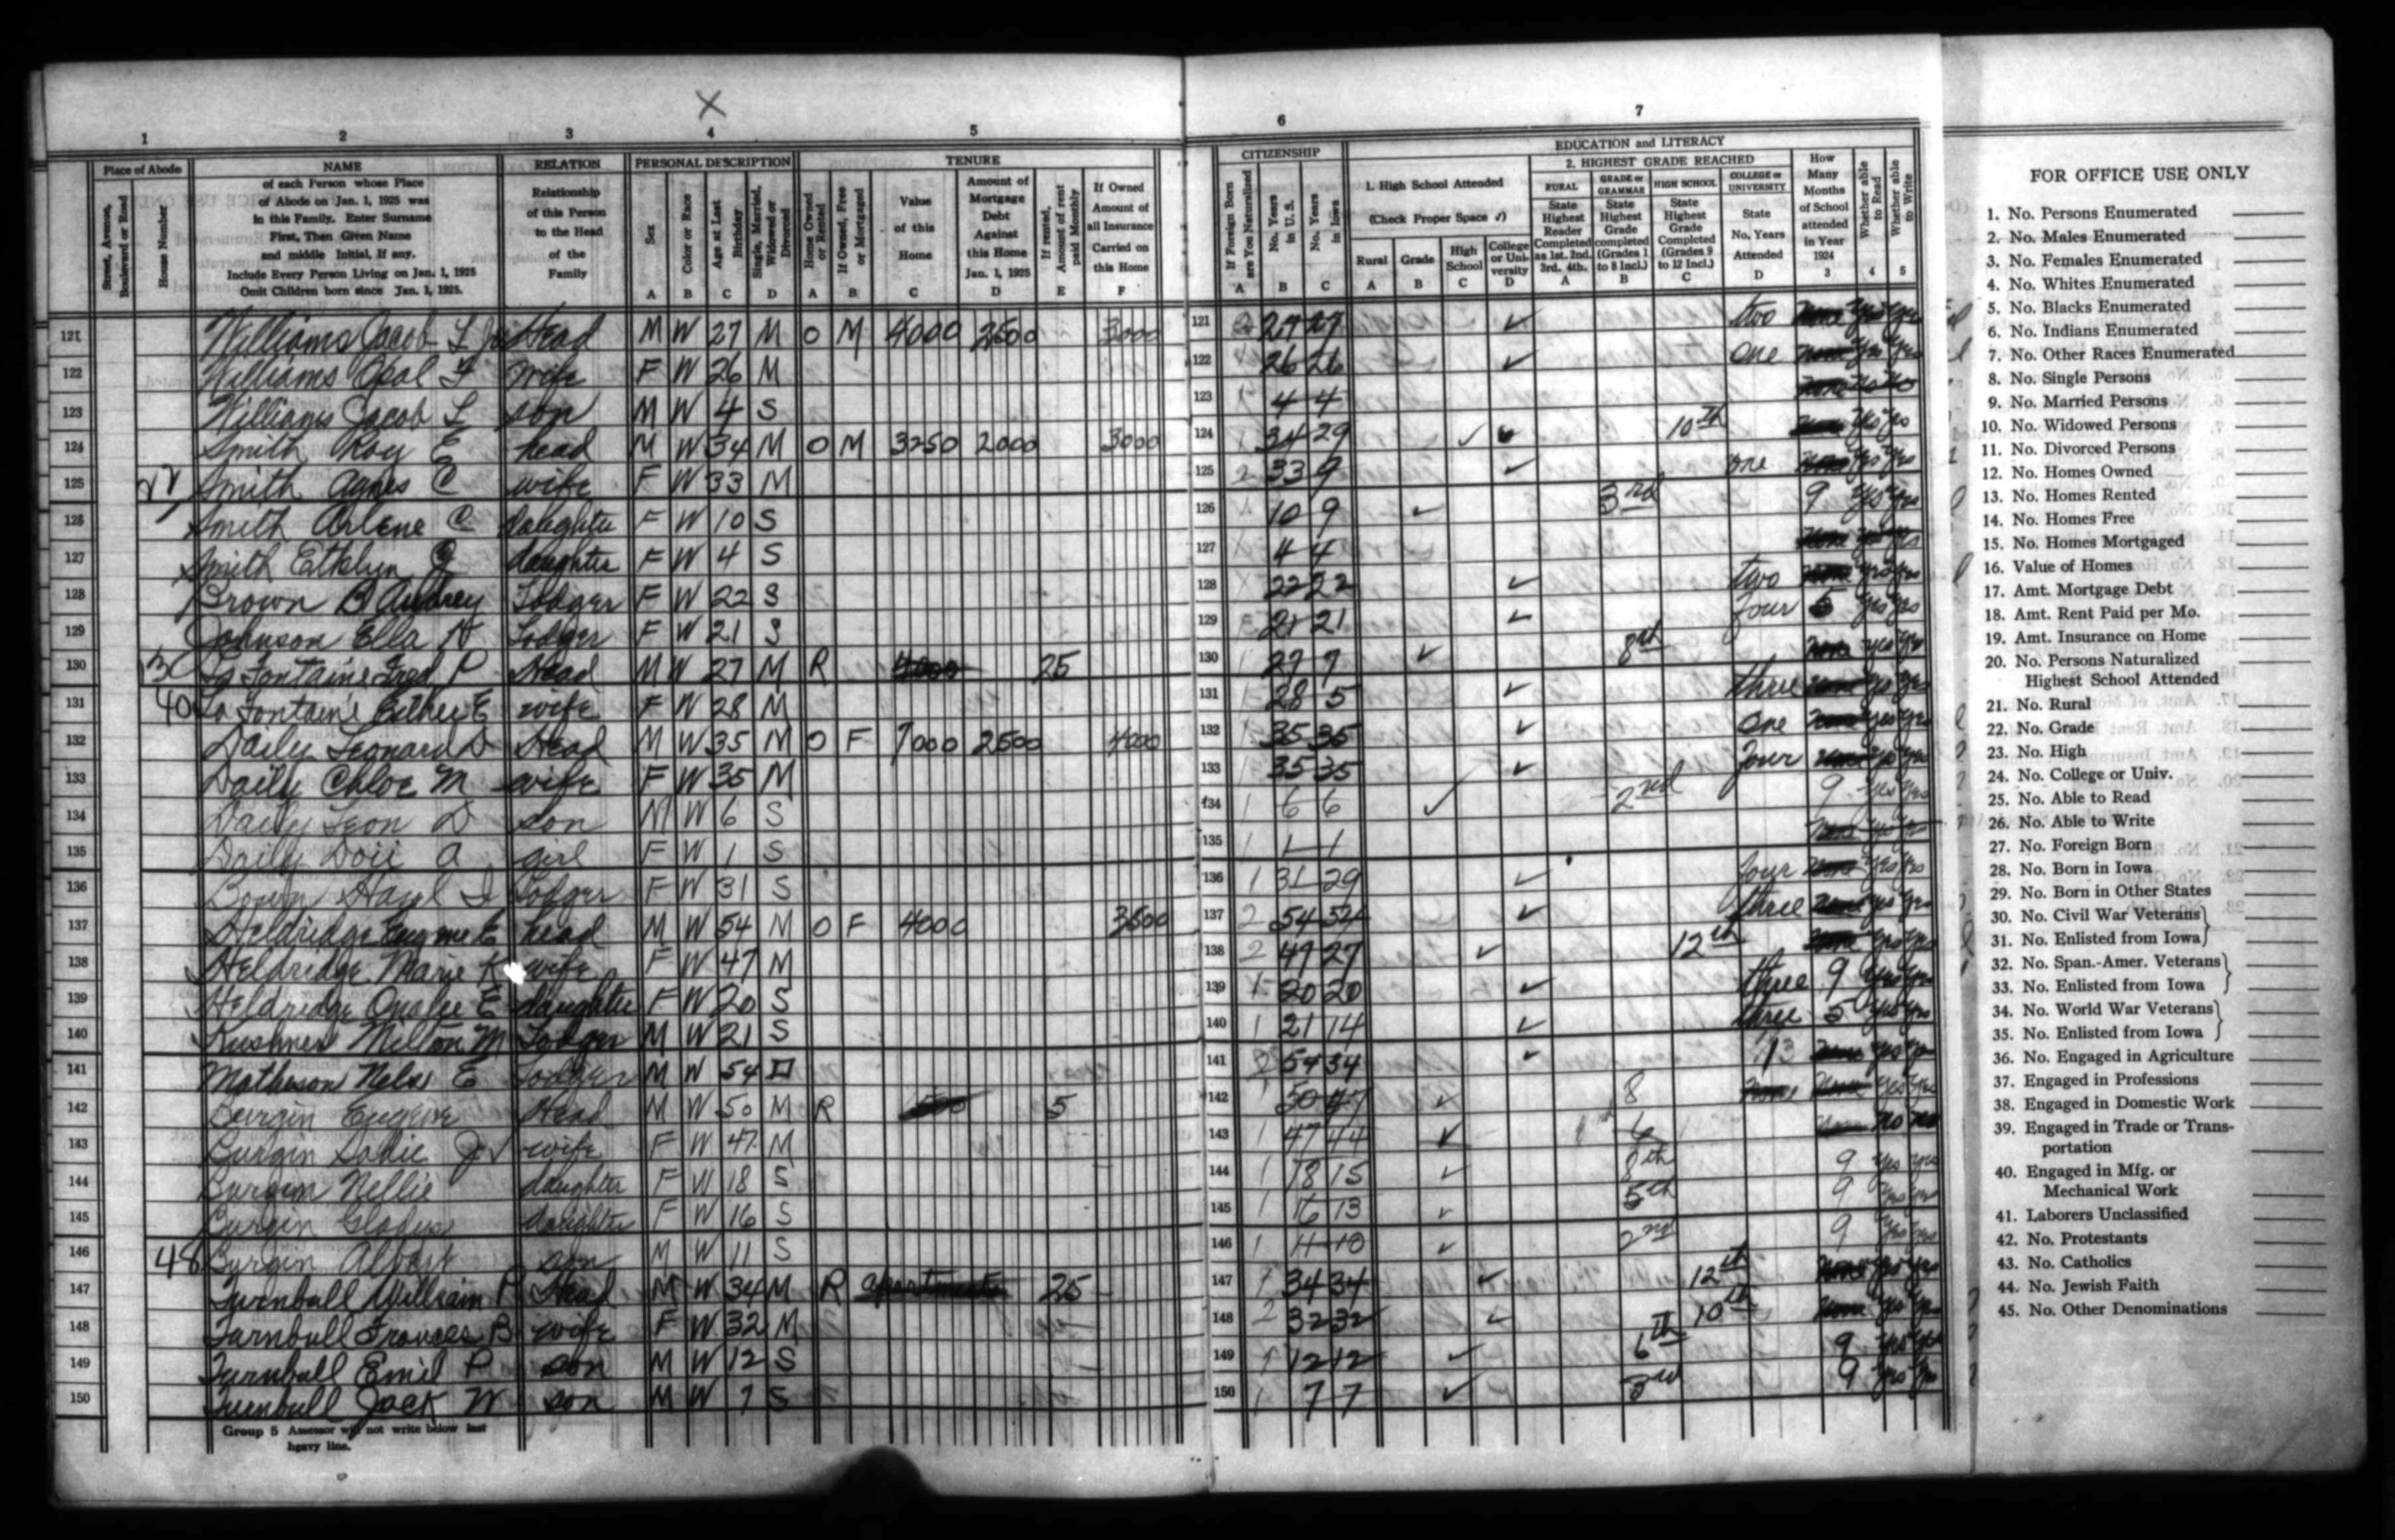 1 2 3 4 5
Place of Abode NAME RELATION PERSONAL DESCRIPTION TENURE
Street, Avenue, Boulevard or Road
House Number
of each Person whose Place
of Abode on Jan. 1, 1925 was
in this Family. Enter Surname
First, Then Given Name
and middle Initial, If any.
Include Every Person Living on Jan. 1, 1925
Omit Children born since Jan. 1, 1925.
Relationship
of this Person
to the Head
of the
Family
Sex
Color or Race
Age at Last Birthday
Single, Married, Widowed or Divorced
Home Owned or Rented
If Owned, Free or Mortgaged
Value of this Home
Amount of Mortgage Debt Against this Home Jan. 1, 1925
If rented, Amount of rent paid Monthly
If Owned Amount of all Insurance Carried on this Home
A B C D A B C D E F
121 Williams Jacob L Jr Head M W 27 M O M 4000 2500 3000
122 Williams Opal F wife F W 26 M
123 Williams Jacob L son M W 4 S
124 Smith Roy E head M W 34 M O M 3250 2000 3000
125 Smith Agnes C wife F W 33 M
126 Smith Arlene C daughter F W 10 S
127 Smith daughter F W 4 S
128 Brown B Audrey Lodger F W 22 S
129 Johnson Ella H Lodger F W 21 S
130 La Fontaine Fred P Head M W 27 M R 4000 25
131 40 La Fontaine Esther E wife F W 28 M
132 Daily Leonard D Head M W 35 M O F 7000 2500 4000
133 Daily Chloe M wife F W 35 M
134 Daily Leon D son M W 6 S
135 Daily A girl F W 1 S
136 Bowen Hazel I Lodger F W 31 S
137 Heldridge Eugene E head M W 54 M O F 4000 3500
138 Heldridge Marie K wife F W 47 M
139 Heldridge Onalee E daughter F W 20 S
140 Kushner Milton M Lodger M W 21 S
141 Matheson Nels E Lodger M W 54 D
142 Burgin Eugene Head M W 50 M R 5
143 Burgin Sadie J wife F W 47 M
144 Burgin Nellie daughter F W 18 S
145 Burgin Gladys daughter F W 16 S
146 48 Burgin Albert son M W 11 S
147 Turnbull William P Head M W 34 M R apartments 25
148 Turnbull Frances B wife F W 32 M
149 Turnbull Emil P son M W 12 S
150 Turnbull Jack W son M W 7 S
Group 5 Assessor will not write below last
heavy line.
6 7
CITIZENSHIP EDUCATION and LITERACY
If Foreign Born are You Naturalized
No. Years in U. S.
No. Years in Iowa
1. High School Attended
(Check Proper Space ✓)
Rural Grade High School College or University
2. HIGHEST GRADE REACHED
RURAL State Highest Reader Completed as 1st. 2nd. 3rd. 4th.
GRADE or GRAMMAR State Highest Grade completed (Grades 1 to 8 Incl.)
HIGH SCHOOL State Highest Grade Completed (Grades 9 to 12 Incl.)
COLLEGE or UNIVERSITY State No. Years Attended
How Many Months of School attended in Year 1924
Whether able to Read
Whether able to Write
A B C A B C D A B C D 3 4 5
121 2 27 27 ✓ two None Yes Yes
122 26 26 ✓ one None Yes Yes
123 4 4 None No No
124 1 34 29 ✓ 10th None Yes Yes
125 2 33 9 ✓ one None Yes Yes
126 10 9 ✓ 3rd 9 Yes Yes
127 4 4 None
128 22 22 ✓ two None Yes Yes
129 21 21 ✓ four 5 Yes Yes
130 1 27 7 ✓ 8th None Yes Yes
131 1 28 5 ✓ three None Yes Yes
132 1 35 35 ✓ one None Yes Yes
133 1 35 35 ✓ four None Yes Yes
134 1 6 6 ✓ 2nd 9 Yes Yes
135 1 1 1 None
136 1 31 29 ✓ four None Yes Yes
137 2 54 54 ✓ three None Yes Yes
138 2 47 27 ✓ 12th None Yes Yes
139 1 20 20 ✓ three 9 Yes Yes
140 1 21 14 ✓ three 5 Yes Yes
141 2 54 34 ✓ 13 None Yes Yes
142 1 50 47 ✓ 8 None None Yes Yes
143 1 47 44 ✓ 6 None no no
144 1 18 15 ✓ 8th 9 Yes Yes
145 1 16 13 ✓ 5th 9 Yes Yes
146 1 11 10 ✓ 2nd 9 Yes Yes
147 1 34 34 ✓ 12th None Yes Yes
148 2 32 32 ✓ 10th None Yes Yes
149 1 12 12 ✓ 6th 9 Yes Yes
150 1 7 7 ✓ 3rd 9 Yes Yes
FOR OFFICE USE ONLY
1. No. Persons Enumerated
2. No. Males Enumerated
3. No. Females Enumerated
4. No. Whites Enumerated
5. No. Blacks Enumerated
6. No. Indians Enumerated
7. No. Other Races Enumerated
8. No. Single Persons
9. No. Married Persons
10. No. Widowed Persons
11. No. Divorced Persons
12. No. Homes Owned
13. No. Homes Rented
14. No. Homes Free
15. No. Homes Mortgaged
16. Value of Homes
17. Amt. Mortgage Debt
18. Amt. Rent Paid per Mo.
19. Amt. Insurance on Home
20. No. Persons Naturalized
Highest School Attended
21. No. Rural
22. No. Grade
23. No. High
24. No. College or Univ.
25. No. Able to Read
26. No. Able to Write
27. No. Foreign Born
28. No. Born in Iowa
29. No. Born in Other States
30. No. Civil War Veterans
31. No. Enlisted from Iowa
32. No. Span.-Amer. Veterans
33. No. Enlisted from Iowa
34. No. World War Veterans
35. No. Enlisted from Iowa
36. No. Engaged in Agriculture
37. Engaged in Professions
38. Engaged in Domestic Work
39. Engaged in Trade or Trans-
portation
40. Engaged in Mfg. or
Mechanical Work
41. Laborers Unclassified
42. No. Protestants
43. No. Catholics
44. No. Jewish Faith
45. No. Other Denominations